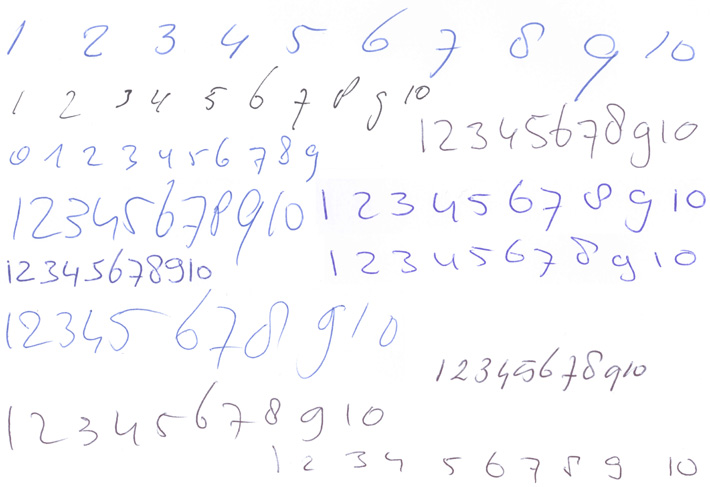 1 2 3 4 5 6 7 8 9 10
1 2 3 4 5 6 7 8 9 10
12345678910
0 1 2 3 4 5 6 7 8 9
12345678910
1 2 3 4 5 6 7 8 9 10
12345678910
1 2 3 4 5 6 7 8 9 10
12345 678 910
12345678910
1 2 3 4 5 6 7 8 9 10
1 2 3 4 5 6 7 8 9 10